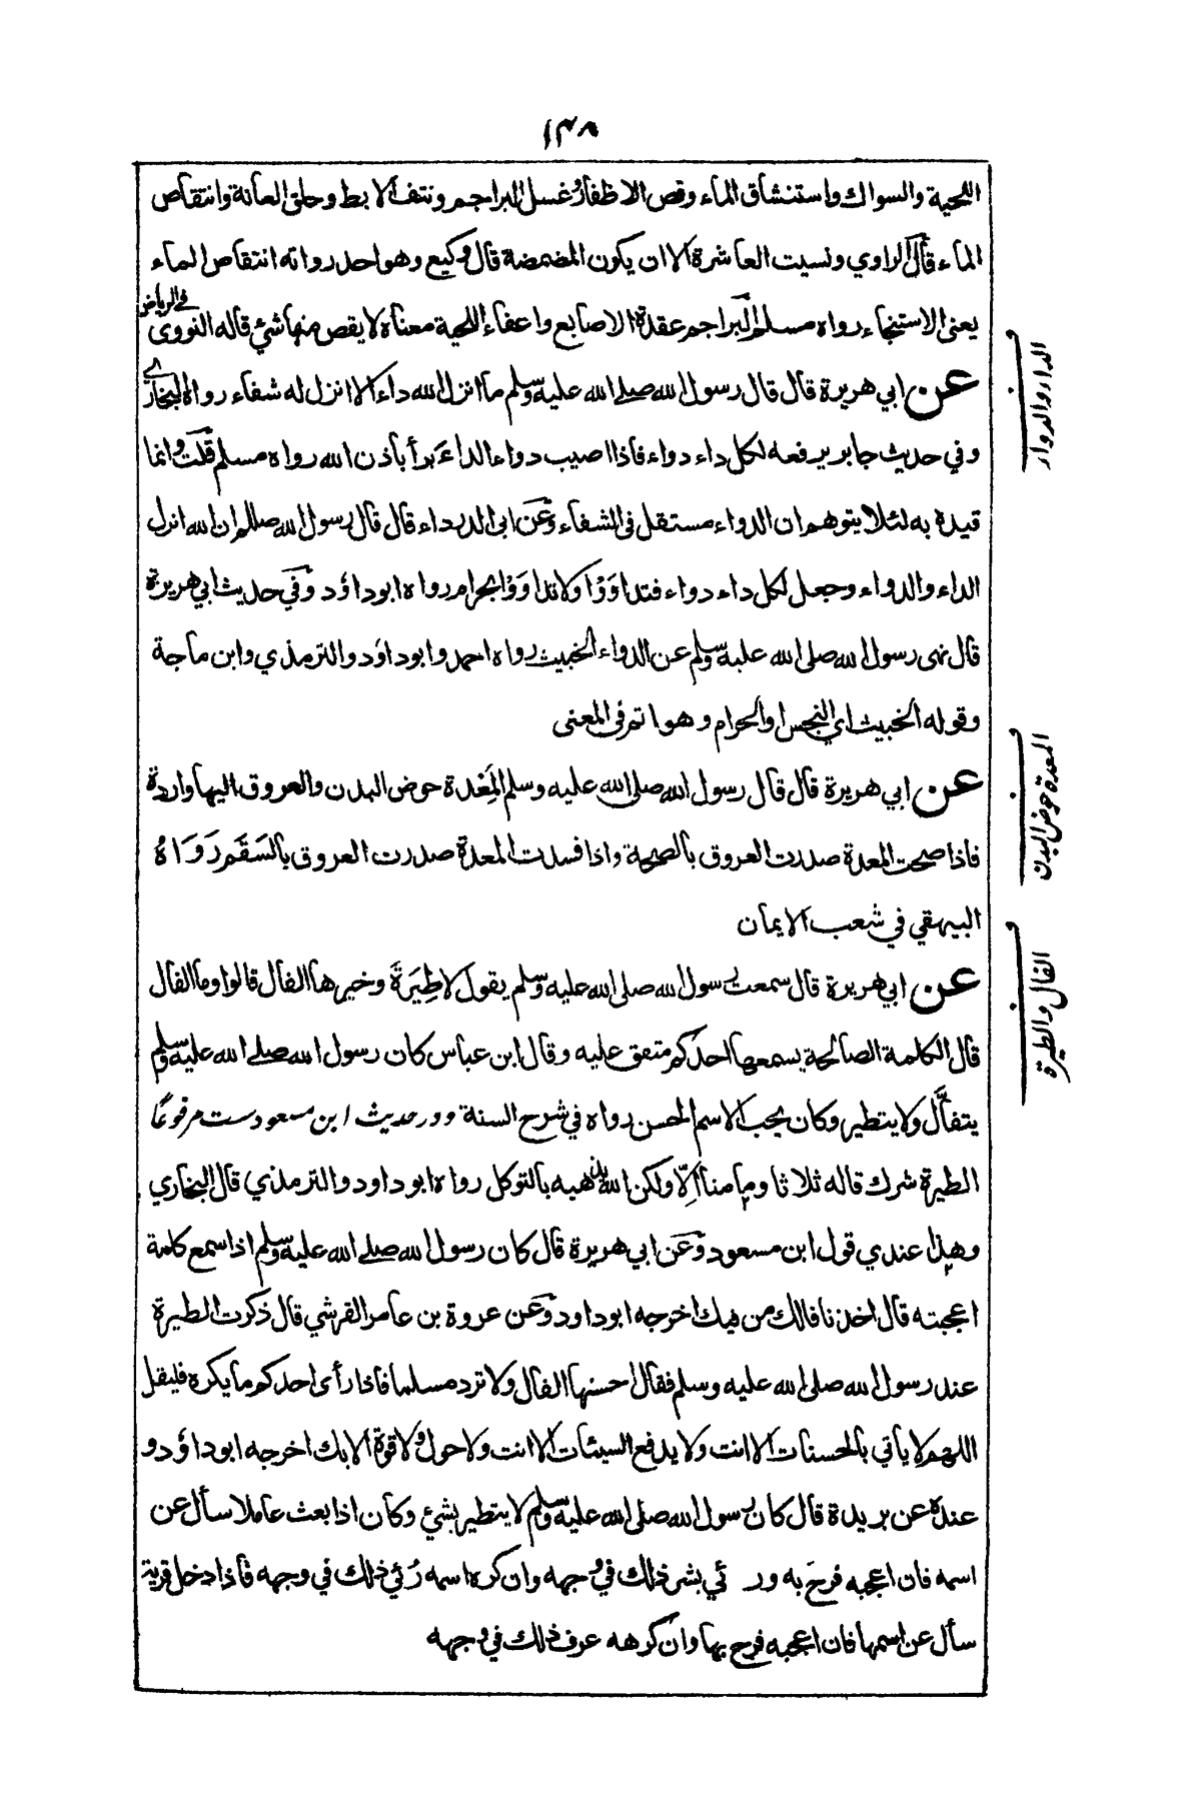 ١٣٨
اللحية والسواك واستنشاق الماء وقص الاظفار وغسل البراجم ونتف الابط وحلق العانة وانتقاص
الماء قال الراوي ونسيت العاشرة الا ان يكون المضمضة قال وكيع وهو احد رواته انتقاص الماء
يعنى الاستنجاء رواه مسلم البراجم عقدة الاصابع واعفاء اللحية معناه لا يقص منها شئ قاله النووى فى الرياض
عن ابي هريرة قال قال رسول الله صلى الله عليه وسلم ما انزل الله داء الا انزل له شفاء رواه البخاري
وفي حديث جابر يرفعه لكل داء دواء فاذا اصيب دواء الداء بَرأ باذن الله رواه مسلم قلت وانما
قيده به لئلا يتوهم ان الدواء مستقل فى الشفاء وعن ابى الدرداء قال قال رسول الله صللم ان الله انزل
الداء والدواء وجعل لكل داء دواء فتداوَوْا ولا تداوَوْا بحرام رواه ابوداؤد وفي حديث ابي هريرة
قال نهى رسول الله صلى الله عليه وسلم عن الدواء الخبيث رواه احمد وابوداؤد والترمذي وابن ماجة
وقوله الخبيث اي النجس او الحرام وهو اتم فى المعنى
عن ابي هريرة قال قال رسول الله صلى الله عليه وسلم المَعِدة حوض البدن والعروق اليها واردة
فاذا صحت المعدة صدرت العروق بالصحة واذا فسدت المعدة صدرت العروق بالسَقَم رَوَاهُ
البيهقي في شعب الايمان
عن ابي هريرة قال سمعت رسول الله صلى الله عليه وسلم يقول لا طِيَرَةَ وخيرها الفال قالوا وما الفال
قال الكلمة الصالحة يسمعها احدكم متفق عليه وقال ابن عباس كان رسول الله صلى الله عليه وسلم
يتفأَّل ولا يتطير وكان يحب الاسم الحسن رواه في شرح السنة ودر حديث ابن مسعود ست مرفوعًا
الطيرة شرك قاله ثلاثا وما منا اِلّا ولكن الله يذهبه بالتوكل رواه ابوداود والترمذي قال البخاري
وهذا عندي قول ابن مسعود وعن ابي هريرة قال كان رسول الله صلى الله عليه وسلم اذا سمع كلمة
اعجبته قال اخذنا فالك من فيك اخرجه ابوداود وعن عروة بن عامر القرشي قال ذكرت الطيرة
عند رسول الله صلى الله عليه وسلم فقال احسنها الفال ولا ترد مسلما فاذا رأى احدكم ما يكره فليقل
اللهم لا يأتي بالحسنات الا انت ولا يدفع السيئات الا انت ولا حول ولا قوة الا بك اخرجه ابوداؤد و
عنده عن بريدة قال كان رسول الله صلى الله عليه وسلم لا يتطير بشئ وكان اذا بعث عاملا سأل عن
اسمه فان اعجبه فرح به ورئي بشر ذلك في وجهه وان كره اسمه رُئي ذلك في وجهه فاذا دخل قرية
سأل عن اسمها فان اعجبه فرح بها وان كرهه عرف ذلك في وجهه
ف الداء والدواء
ف المعدة حوض البدن
ف الفال والطيرة